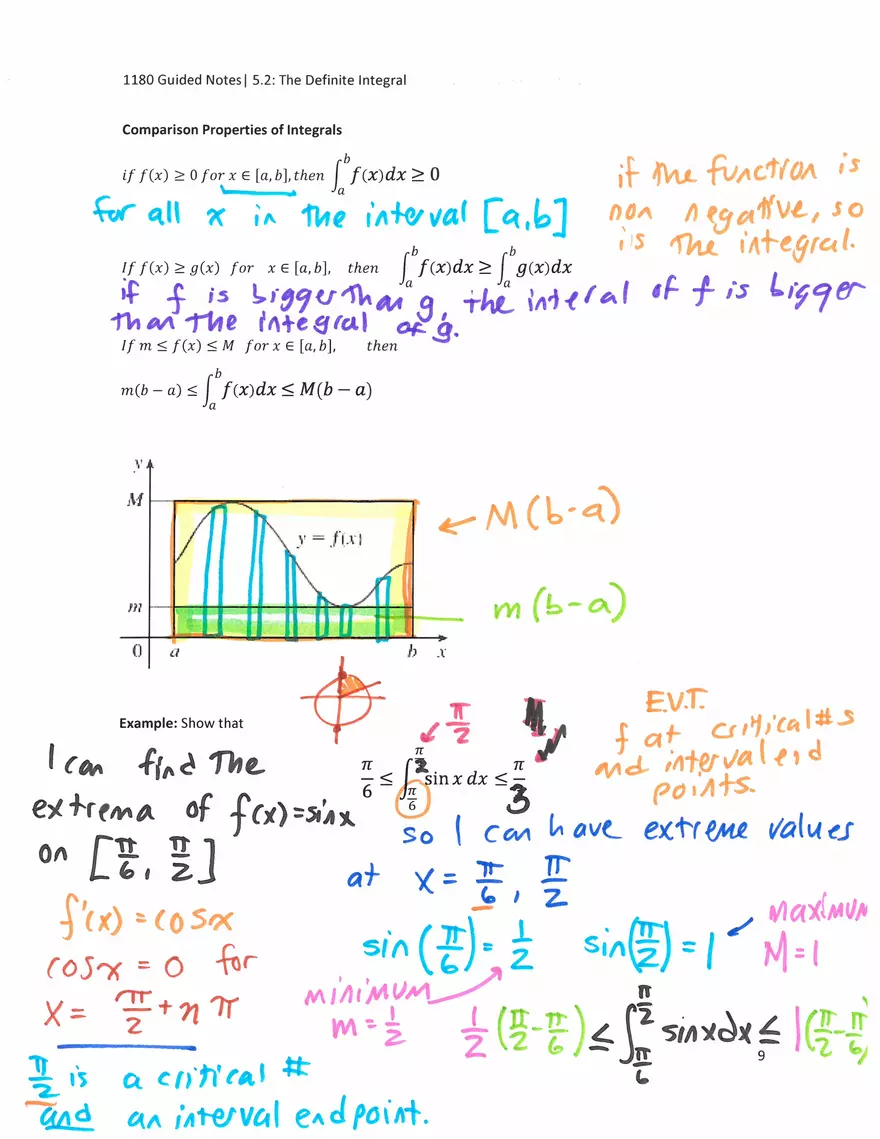 1180 Guided Notes| 5.2: The Definite Integral
Comparison Properties of Integrals
if f(x) ≥ 0 for x ∈ [a, b], then ∫_a^b f(x)dx ≥ 0
for all x in the interval [a,b]
if the function is
non negative, so
is the integral.
If f(x) ≥ g(x) for x ∈ [a, b], then ∫_a^b f(x)dx ≥ ∫_a^b g(x)dx
if f is bigger than g, the interal of f is bigger
than the integral of g.
If m ≤ f(x) ≤ M for x ∈ [a, b], then
m(b − a) ≤ ∫_a^b f(x)dx ≤ M(b − a)
y
M
y = f(x)
m
0 a b x
← M(b-a)
m(b-a)
Example: Show that
π/6 ≤ ∫_{π/6}^{π/2} sin x dx ≤ π/3
π/2
E.V.T.
f at critical #s
and interval end
points.
I can find the
extrema of f(x)=sinx
on [π/6, π/2]
so I can have extreme values
at x = π/6, π/2
f'(x) = cosx
cosx = 0 for
x = π/2 + nπ
sin(π/6) = 1/2 sin(π/2) = 1
maximum
M=1
minimum
m = 1/2
1/2(π/2 - π/6) ≤ ∫_{π/6}^{π/2} sinxdx ≤ 1(π/2 - π/6)
9
π/2 is a critical #
and an interval endpoint.